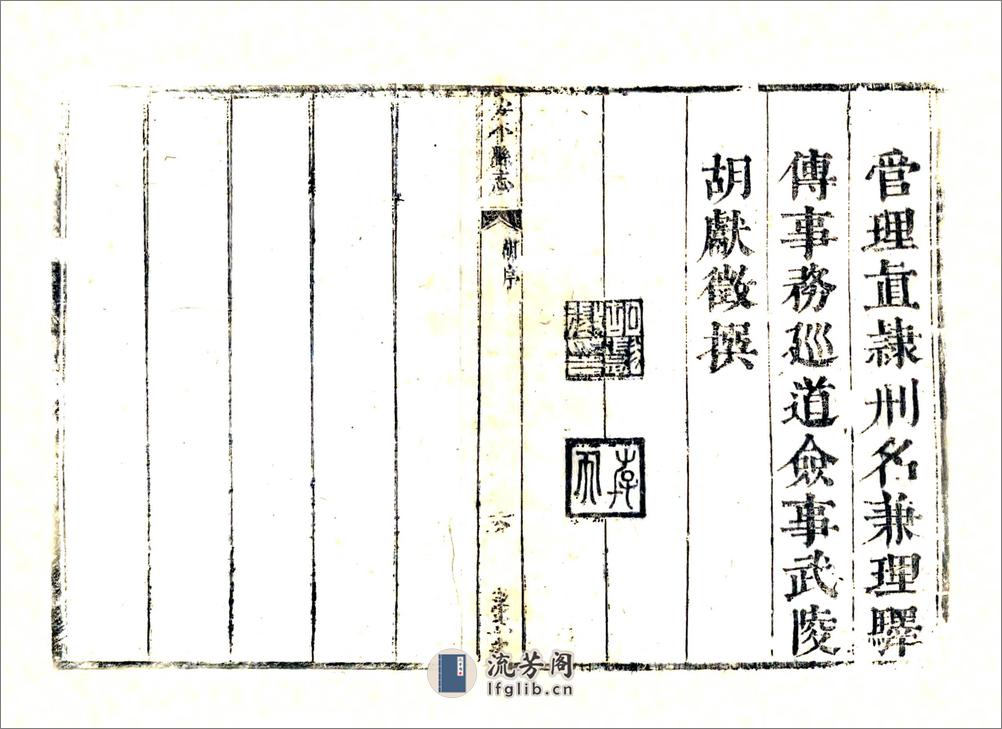 管理直隸刑名兼理驛
傳事務廵道僉事武陵
胡獻徵撰
縣志
胡序
六
流芳阁
lfglib.cn